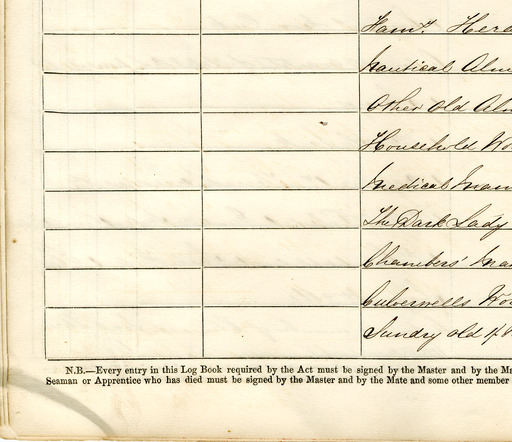 Ham.t Herd
Nautical Alm
Other Old Alm
Household Wo
Medical Man
The Dark Lady
Chambers' Ma
Culverwells Wo
Sundry old
N.B.—Every entry in this Log Book required by the Act must be signed by the Master and by the Ma
Seaman or Apprentice who has died must be signed by the Master and by the Mate and some other member